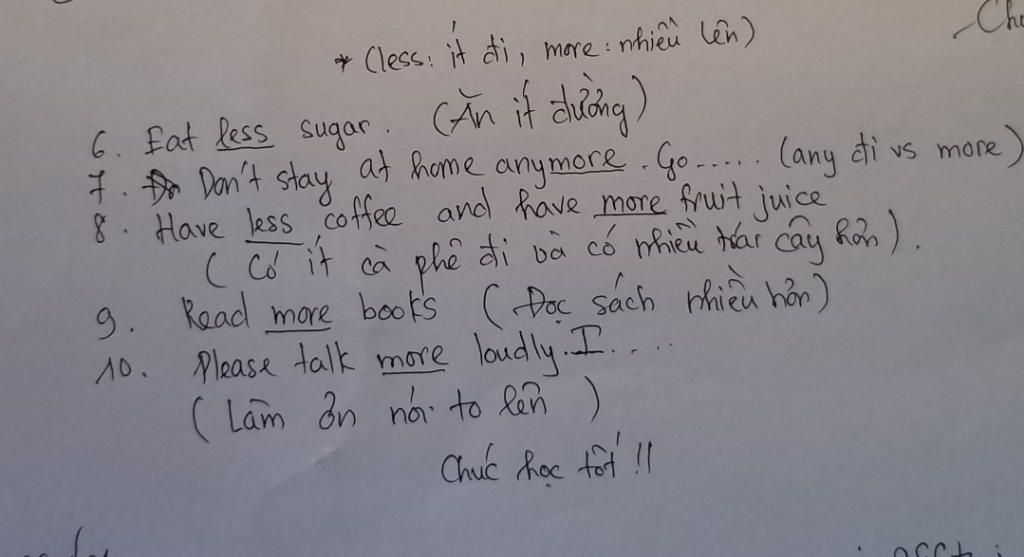 * (less: ít đi, more: nhiều lên)
6. Eat less sugar. (Ăn ít đường)
7. Don't stay at home anymore. Go..... (any đi vs more)
8. Have less coffee and have more fruit juice
( Có ít cà phê đi và có nhiều trái cây hơn).
9. Read more books ( Đọc sách nhiều hơn)
10. Please talk more loudly. I....
( Làm ơn nói to lên )
Chúc học tốt !!